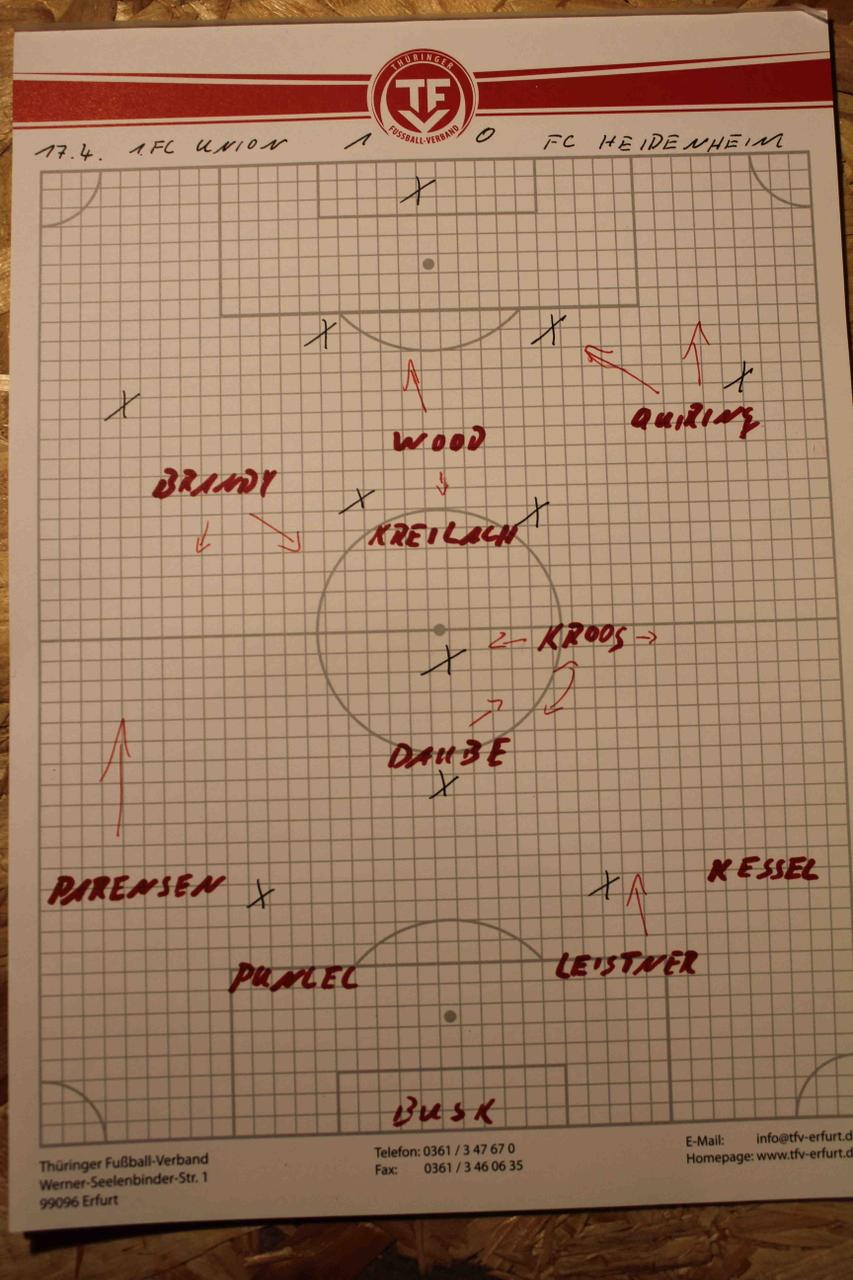 THÜRINGER
TF
FUSSBALL-VERBAND
17.4. 1FC UNION 1 0 FC HEIDENHEIM
QUIRING
WOOD
BRANDY
KREILACH
KROOS
DAUBE
KESSEL
PARENSEN
LEISTNER
PUNCEC
BUSK
Thüringer Fußball-Verband
Werner-Seelenbinder-Str. 1
99096 Erfurt
Telefon: 0361 / 3 47 67 0
Fax: 0361 / 3 46 06 35
E-Mail: info@tfv-erfurt.d
Homepage: www.tfv-erfurt.d